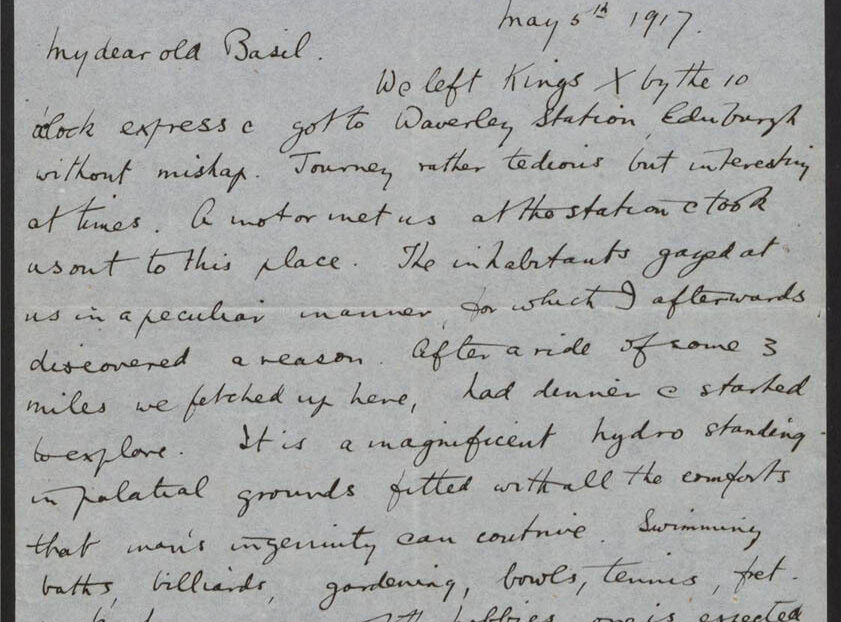 May 5th 1917.
My dear old Basil.
We left Kings X by the 10
o'clock express & got to Waverley Station, Edinburgh
without mishap. Journey rather tedious but interesting
at times. A motor met us at the station & took
us out to this place. The inhabitants gazed at
us in a peculiar manner, for which I afterwards
discovered a reason. After a ride of some 3
miles we fetched up here, had dinner & started
to explore. It is a magnificent hydro standing
in palatial grounds fitted with all the comforts
that man's ingenuity can contrive. Swimming
baths, billiards, gardening, bowls, tennis, fret-
hobbies one is expected